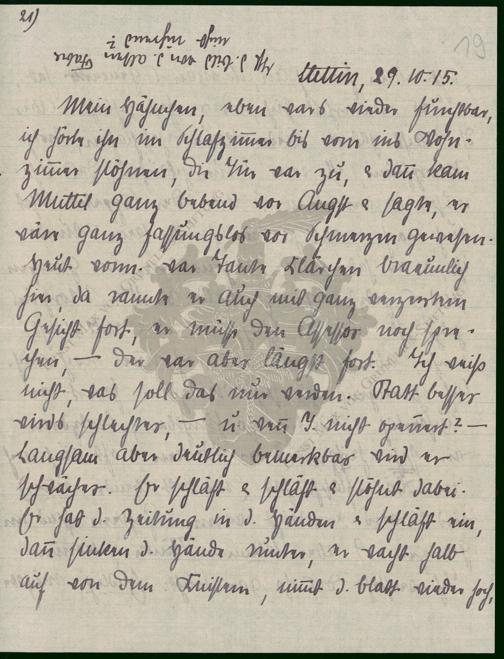 21)
Ist d. Bild von d. alten Fabre
nicht rührend?
19
Stettin, 29. IV. 15.
Mein Hähnchen, eben wars wieder furchtbar,
ich hörte ihn im Schlafzimmer bis vorn ins Wohn-
zim̄er stöhnen, die Tür war zu, & dan̄ kam
Muttel ganz bebend vor Angst & sagte, er
wäre ganz fassungslos vor Schmerzen gewesen.
Heut vorm. war Tante Klärchen
hier da rannte er auch mit ganz verzerrtem
Gesicht fort, er müsse den Assessor noch spre-
chen, — der war aber längst fort. Ich weiß
nicht, was soll das nur werden. Statt besser
wirds schlechter, — u. wen̄ J. nicht operiert? —
Langsam aber deutlich bemerkbar wird er
schwächer. Er schläft & schläft & stöhnt dabei.
Er hat d. Zeitung in d. Händen & schläft ein,
dan̄ sinken d. Hände runter, er wacht halb
auf von dem Knistern, nim̄t d. Blatt wieder hoch,